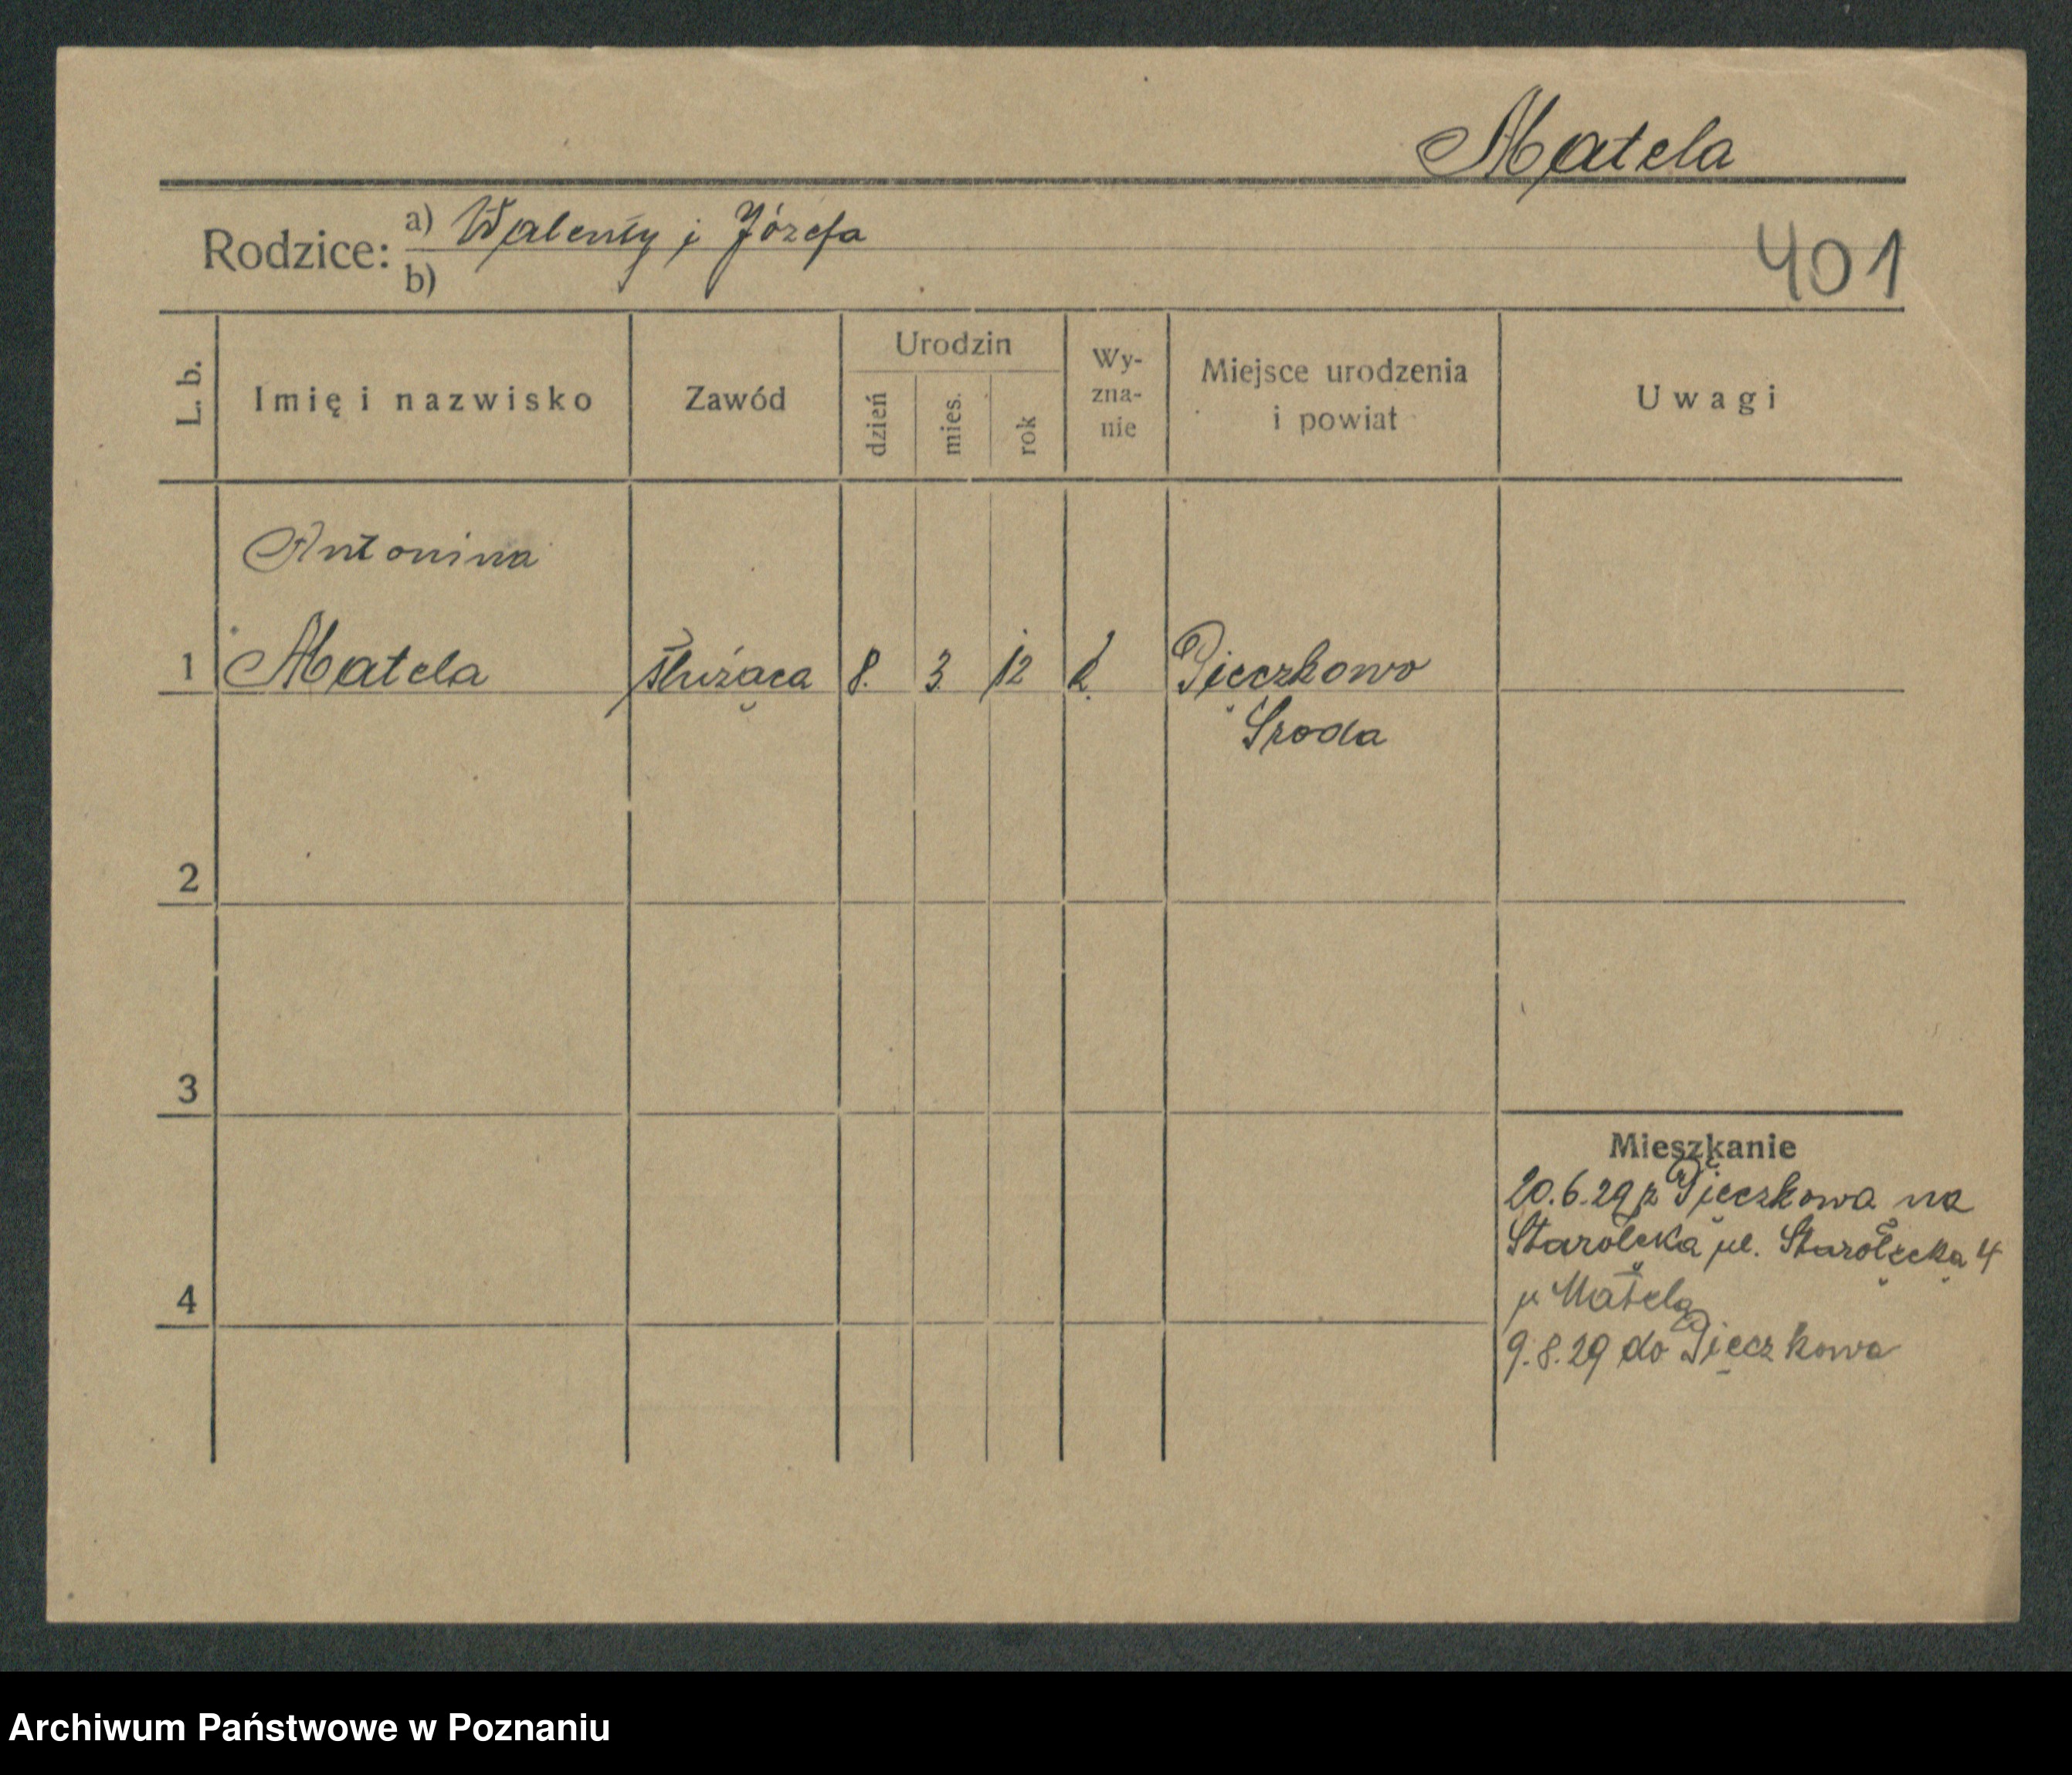 Matela
Rodzice: a) Walenty i Józefa
b)
401
L. b.
Imię i nazwisko
Zawód
Urodzin
dzień
mies.
rok
Wy-
zna-
nie
Miejsce urodzenia
i powiat
Uwagi
Antonina
1 Matela służąca 8. 3. 12 k. Pięczkowo
Sroda
2
3
4
Mieszkanie
20.6.29 z Pięczkowa na
Starołęka ul. Starołęcka 4
u Matela
9.8.29 do Pięczkowa
Archiwum Państwowe w Poznaniu